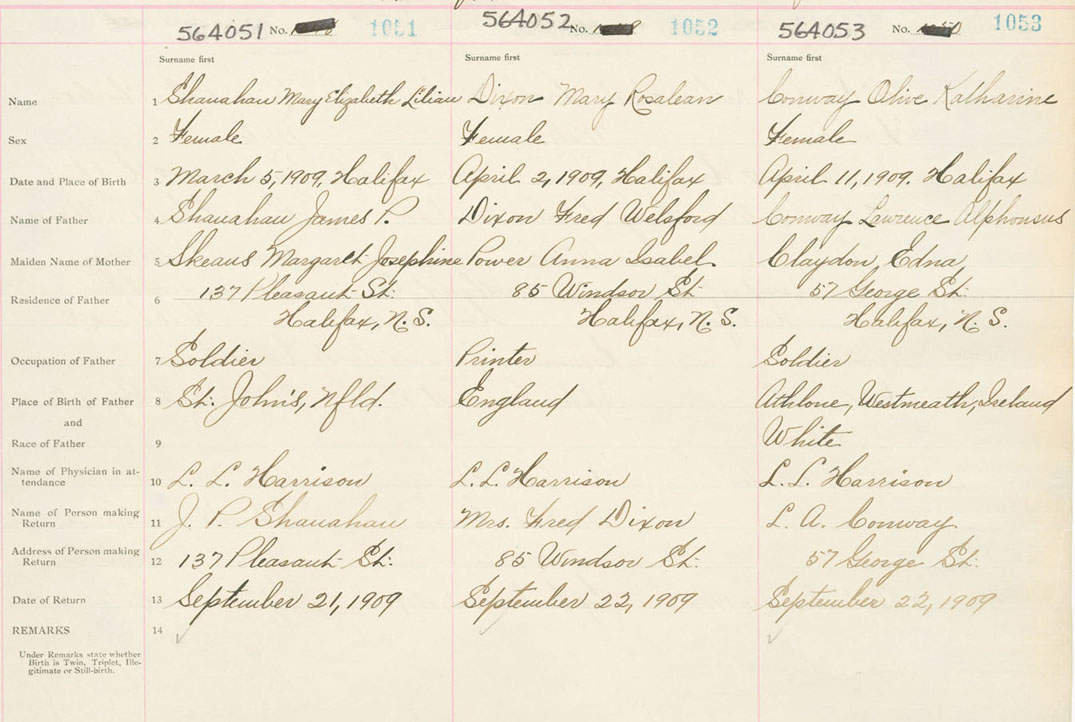 564051 No. 1051 564052 No. 1052 564053 No. 1053
Surname first Surname first Surname first
Name 1 Shanahan Mary Elizabeth Lilian Dixon Mary Rosalean Conway Olive Katharine
Sex 2 Female Female Female
Date and Place of Birth 3 March 5, 1909, Halifax April 2, 1909, Halifax April 11, 1909. Halifax
Name of Father 4 Shanahan James P. Dixon Fred Welsford Conway Lawrence Alphonsus
Maiden Name of Mother 5 Skeaus Margaret Josephine Power Anna Isabel Claydon Edna
Residence of Father 6 137 Pleasant St. 85 Windsor St. 57 George St.
Halifax, N.S. Halifax, N.S. Halifax, N.S.
Occupation of Father 7 Soldier Printer Soldier
Place of Birth of Father 8 St. John's, Nfld. England Athlone, Westmeath, Ireland
and
Race of Father 9 White
Name of Physician in at-
tendance 10 L. L. Harrison L. L. Harrison L. L. Harrison
Name of Person making
Return 11 J. P. Shanahan Mrs. Fred Dixon L. A. Conway
Address of Person making
Return 12 137 Pleasant St. 85 Windsor St. 57 George St.
Date of Return 13 September 21, 1909 September 22, 1909 September 22, 1909
REMARKS 14
Under Remarks state whether
Birth is Twin, Triplet, Ille-
gitimate or Still-birth.